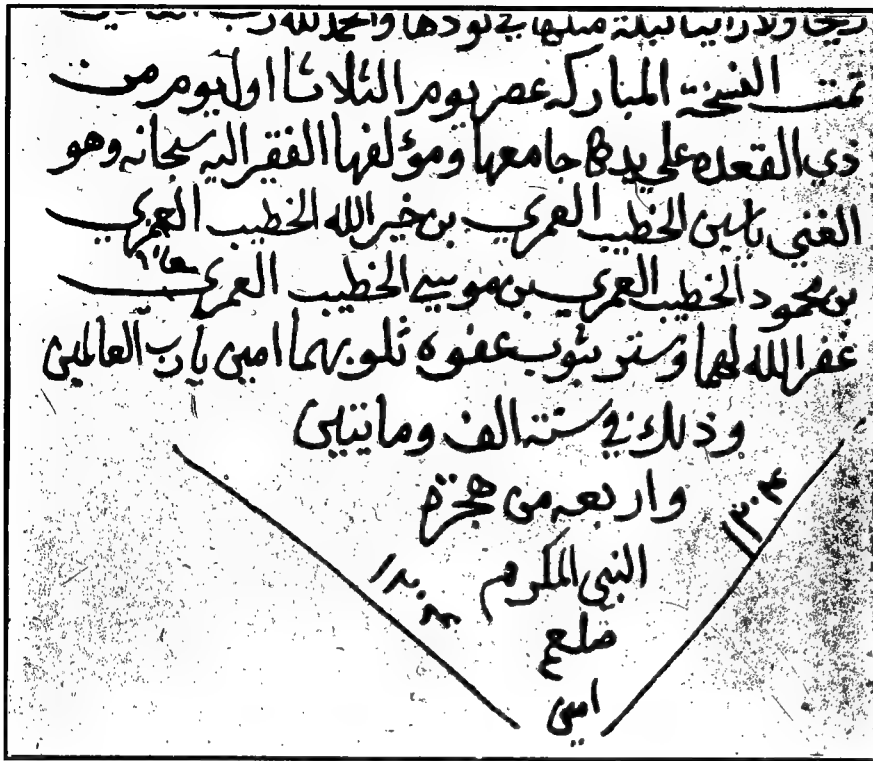 تمت النسخة المباركه عصر يوم الثلاثا اول يوم من
ذي القعده علي يد جامعها ومؤلفها الفقر اليه سبحانه وهو
الغني ياسين الخطيب العمري بن خير الله الخطيب العمري
بن محمود الخطيب العمري بن موسي الخطيب العمري
غفر الله لهما وستر بثوب عفوه ذنوبهما امين يا رب العالمين
وذلك في سنة الف ومايتين
واربعه من هجرة
النبي المكرم
صلعم
امين
١٢٠٤
١٢٠٤